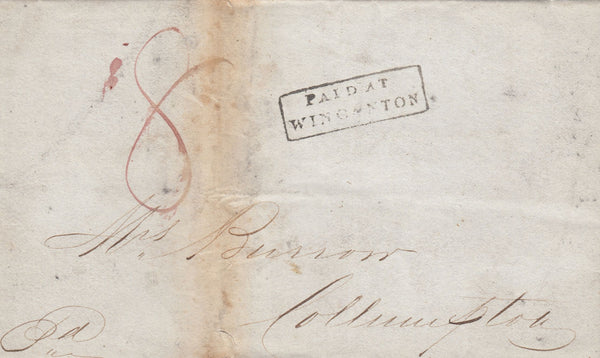 8
PAID AT
WINCANTON
Mrs Burrow
Collumpton
Pd